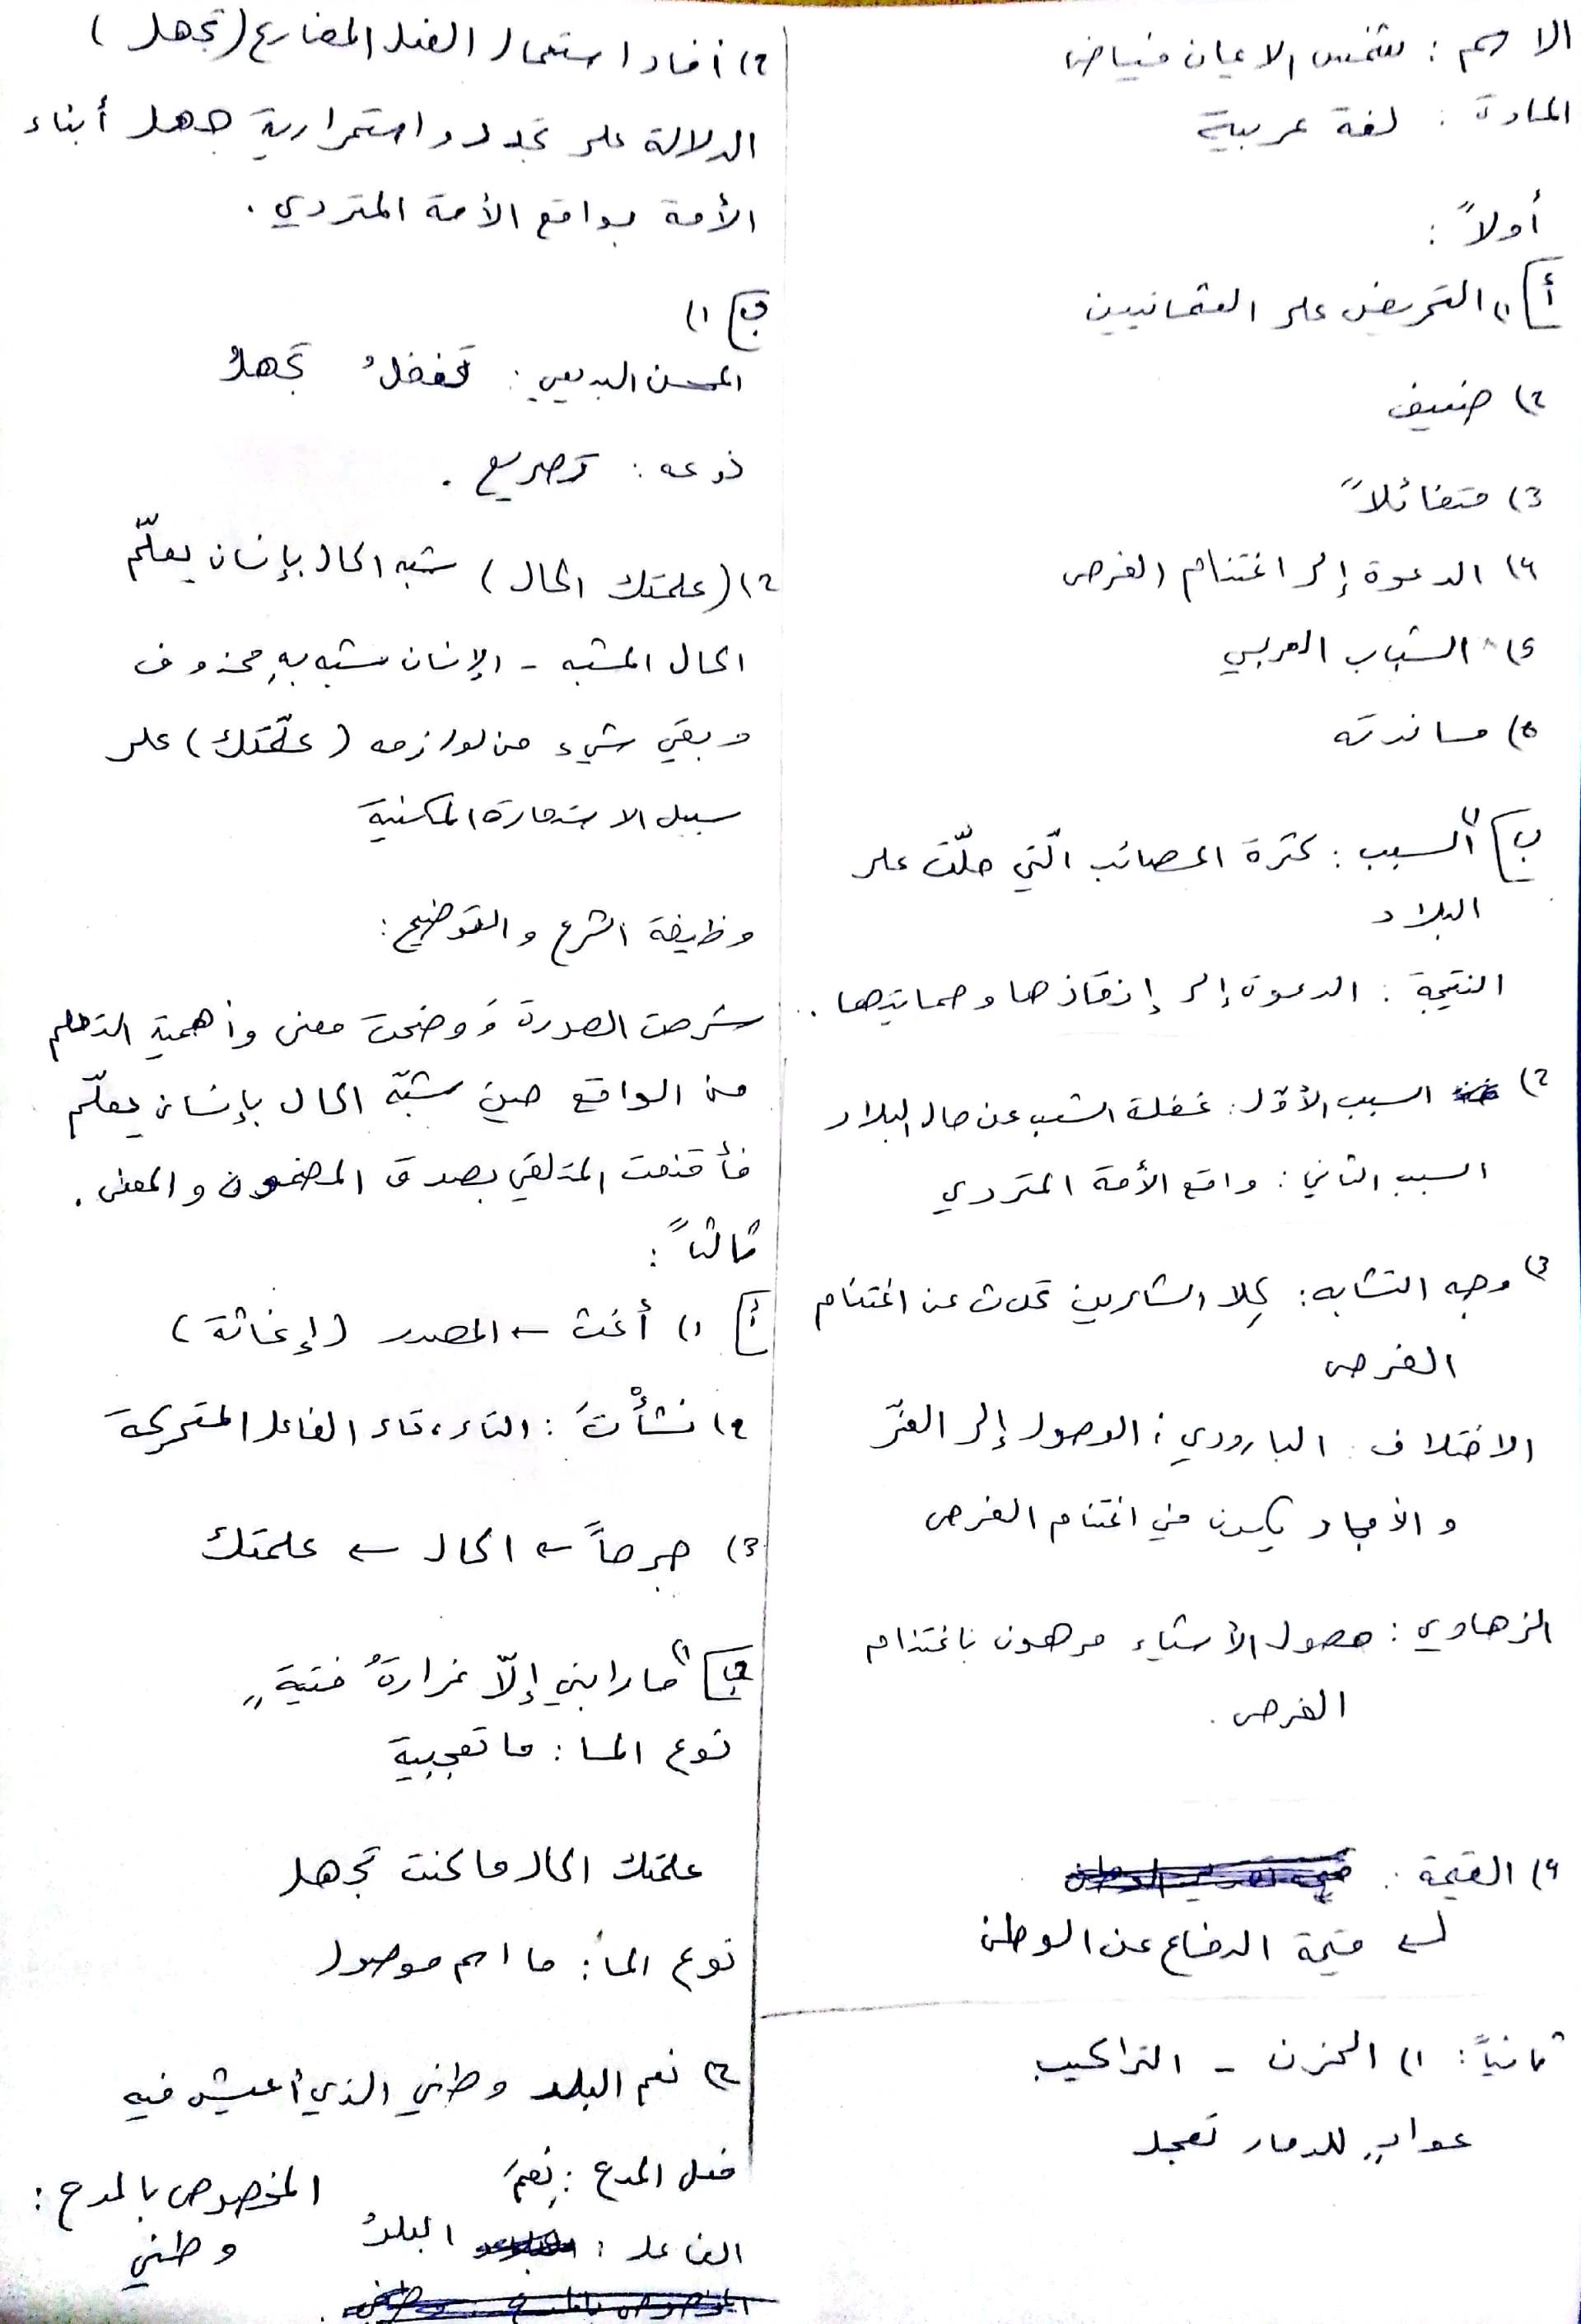 الاسم : شمس الايمان فياض
المادة : لغة عربية
أولاً :
أ] ١) التحريض على العثمانيين
٢) ضعيف
3) متفائلاً
٤) الدعوة إلى اغتنام الفرص
5) الشباب العربي
٥) مساندته
ب] ١) السبب : كثرة المصائب الّتي حلّت على
البلاد
النتيجة : الدعوة إلى إنقاذها وحمايتها .
٢) السبب الأوّل : غفلة الشعب عن حال البلاد
السبب الثاني : واقع الأمة المتردي
3) وجه التشابه : كِلا الشاعرين تحدث عن اغتنام
الفرص
الاختلاف : البارودي : الوصول إلى العزّ
و الأمجاد يكون في اغتنام الفرص
الزهاوي : حصول الأشياء مرهون باغتنام
الفرص .
٤) القيمة :
قيمة الدفاع عن الوطن
ثانياً : ١) الحزن - التراكيب
عوادٍ للدمار تعجل
٢) أفاد استعمال الفعل المضارع (تجهل)
الدلالة على تجدد واستمرارية جهل أبناء
الأمة بواقع الأمة المتردي .
ب] ١)
المحسن البديعي : تغفلُ تجهلُ
نوعه : تصريع .
٢) (علمتك الحال) شبه الحال بإنسان يعلّم
الحال المشبه - الإنسان مشبه بهِ محذوف
وبقي شيء من لوازمه (علّمتك) على
سبيل الاستعارة المكنية
وظيفة الشرح والتوضيح :
شرحت الصورة وَوضحت معنى وأهمية التعلم
من الواقع حين شبّه الحال بإنسان يعلّم
فأقنعت المتلقي بصدق المضمون والمعنى .
ثالثاً :
أ] ١) أغث ← المصدر (إغاثة)
٢) نشأْتَ : التاء ، تاء الفاعل المتحركة
3) جرحاً ← الحال ← علمتك
ب] ١) ما رابني إلّا غرارةُ فتيةٍ
نوع الما : ما تعجبية
علمتك الحال ما كنت تجهل
نوع الما : ما اسم موصول
٢) نعم البلد وطني الذي أعيش فيه
فعل المدح : نِعمَ
المخصوص بالمدح :
وطني
الفاعل : البلدُ